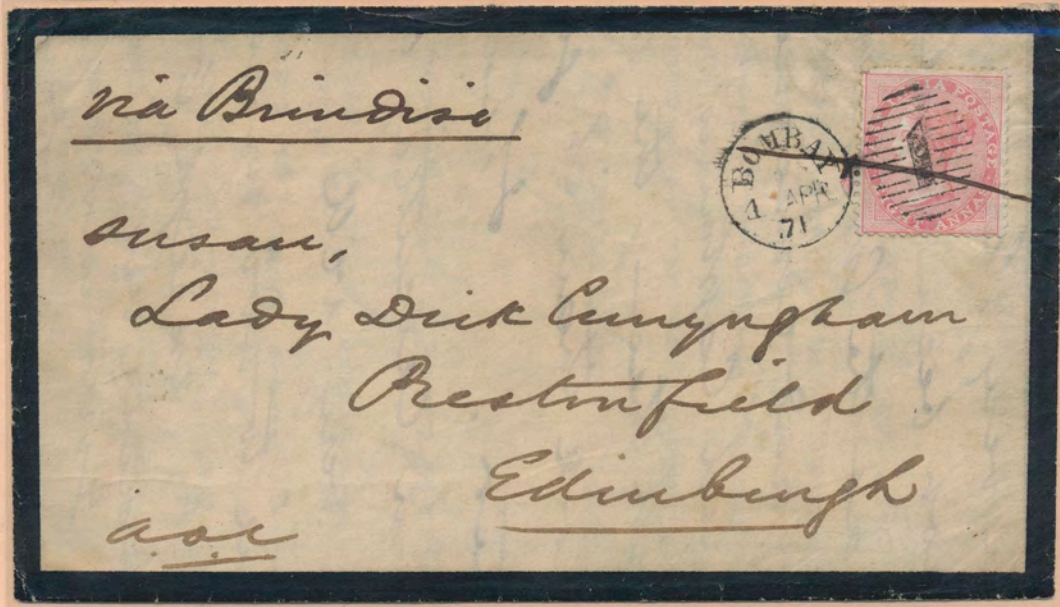 via Brindisi
BOMBAY
1 APR
71
INDIA POSTAGE
EIGHT ANNAS
1
Susan,
Lady Dick Cunyngham
Prestonfield
Edinburgh